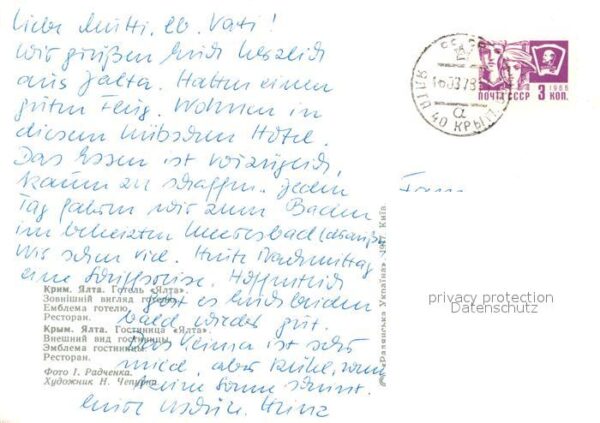 Liebe Mutti, lb. Vati!
wir grüßen Euch herzlich
aus Jalta. Hatten einen
guten Flug. Wohnen in
diesem hübschen Hotel.
Das Essen ist vorzüglich,
kaum zu schaffen. Jeden
Tag gehen wir zum Baden
im beheizten Meeresbad (draußen)
Wir sehen viel. Heute Nachmittag
eine Schiffsreise. Hoffentlich
geht es Euch beiden
bald wieder gut.
Das Klima ist sehr
mild, aber kühl, wenn
keine Sonne scheint.
Eure Heinz
Крим. Ялта. Готель «Ялта».
Зовнішній вигляд готелю.
Емблема готелю.
Ресторан.
Крым. Ялта. Гостиница «Ялта».
Внешний вид гостиницы.
Эмблема гостиницы.
Ресторан.
Фото І. Радченка.
Художник Н. Чепурна
«Радянська Україна». 1977. Київ
СССР
ЯЛТА
КРЫМ
ПОЧТА СССР 3 КОП.
1966
privacy protection
Datenschutz